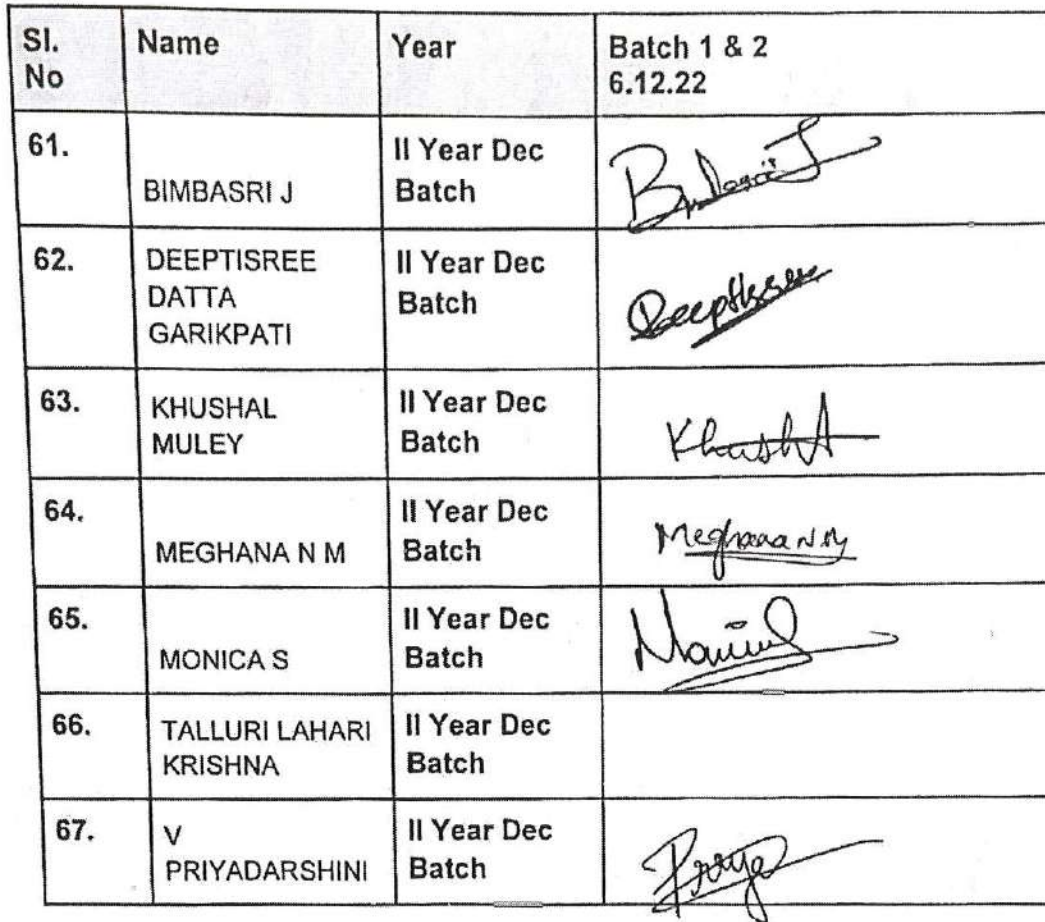 Sl. No Name Year Batch 1 & 2
6.12.22
61. BIMBASRI J II Year Dec Batch
62. DEEPTISREE DATTA GARIKPATI II Year Dec Batch Deeptisree
63. KHUSHAL MULEY II Year Dec Batch
64. MEGHANA N M II Year Dec Batch Meghana N M
65. MONICA S II Year Dec Batch
66. TALLURI LAHARI KRISHNA II Year Dec Batch
67. V PRIYADARSHINI II Year Dec Batch Priya